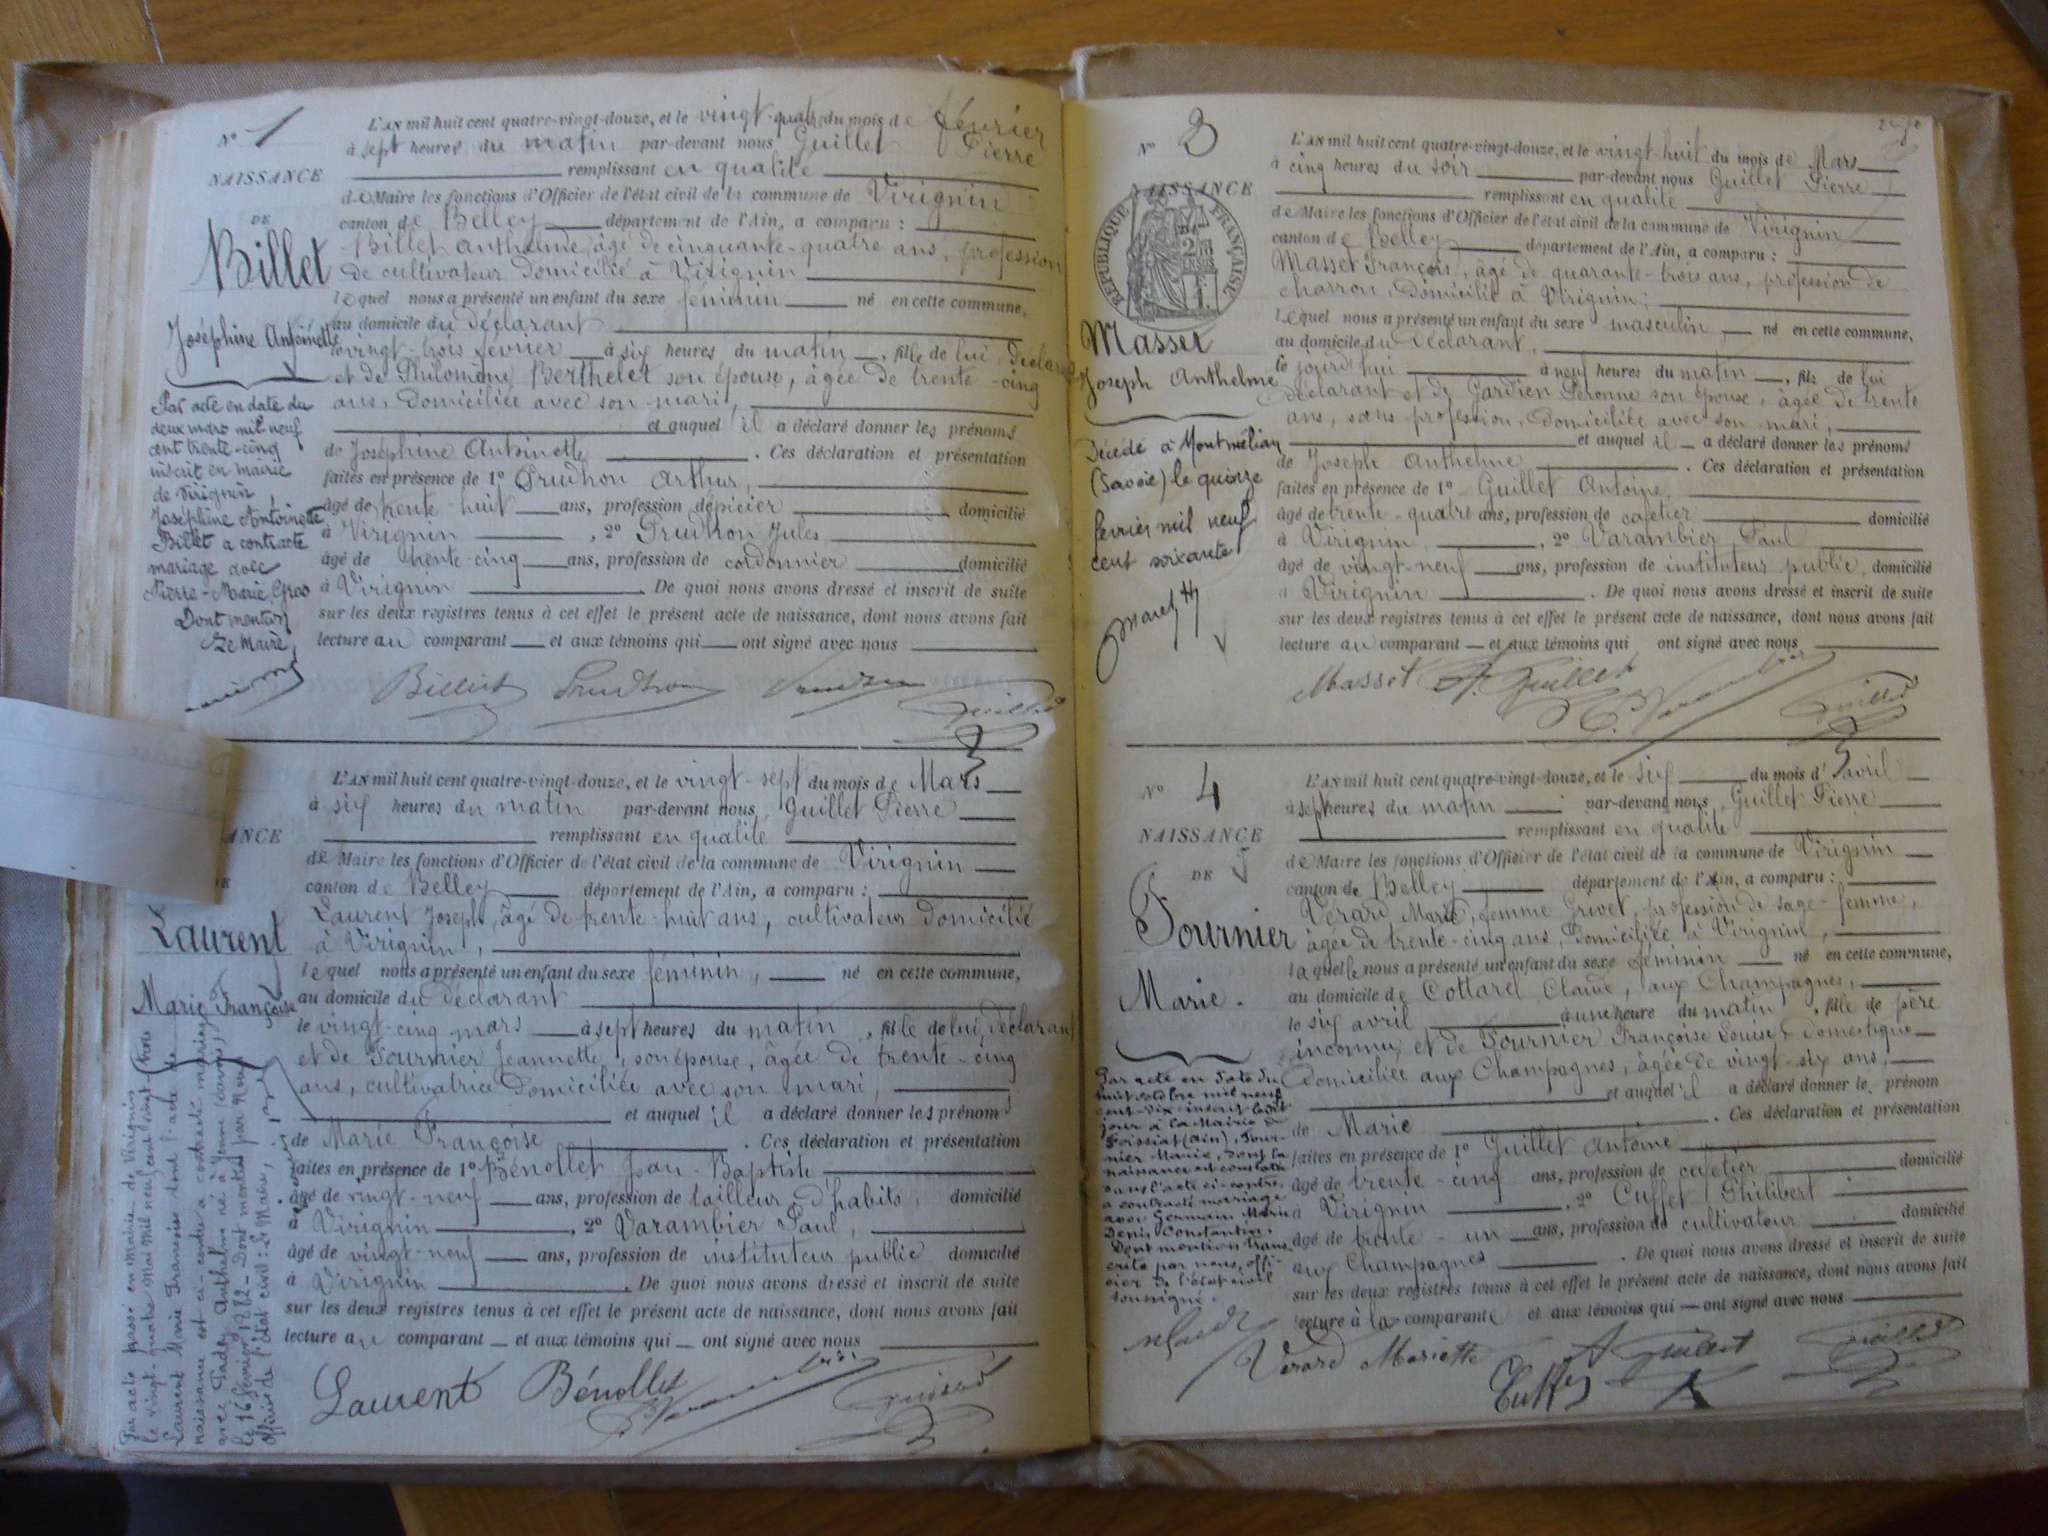 N° 1
NAISSANCE
DE
Billet
Joséphine Antoinette
Par acte en date du
deux mars mil neuf
cent trente-cinq
inscrit en mairie
de Virignin,
Joséphine Antoinette
Billet a contracté
mariage avec
Pierre-Marie Gros
Dont mention
Le Maire,
L'AN mil huit cent quatre-vingt-douze, et le vingt-quatre du mois de février
à sept heures du matin par-devant nous Guillet Pierre
remplissant en qualité
de Maire les fonctions d'Officier de l'état civil de la commune de Virignin
canton de Belley département de l'Ain, a comparu :
Billet Anthelme, âgé de cinquante-quatre ans, profession
de cultivateur domicilié à Virignin
lequel nous a présenté un enfant du sexe féminin né en cette commune,
au domicile du déclarant
le vingt-trois février à six heures du matin, fille de lui déclarant
et de Philomène Berthelet son épouse, âgée de trente-cinq
ans, domiciliée avec son mari,
et auquel il a déclaré donner les prénoms
de Joséphine Antoinette. Ces déclaration et présentation
faites en présence de 1° Prudhon Arthur,
âgé de trente-huit ans, profession d'épicier domicilié
à Virignin, 2° Prudhon Jules
âgé de trente-cinq ans, profession de cordonnier domicilié
à Virignin. De quoi nous avons dressé et inscrit de suite
sur les deux registres tenus à cet effet le présent acte de naissance, dont nous avons fait
lecture au comparant et aux témoins qui ont signé avec nous
Billet Prudhon Prudhon Guillet
NAISSANCE
DE
Laurent
Marie Françoise
Par acte passé en Mairie de Virignin
le vingt-quatre Mai mil neuf cent vingt-trois
Laurent Marie Françoise dont l'acte de
naissance est ci-contre a contracté mariage
avec Anthelme né à Yenne (Savoie)
le 16 février 1882 - Dont mention par Nous
officier de l'état civil : Le Maire,
L'AN mil huit cent quatre-vingt-douze, et le vingt-sept du mois de Mars
à six heures du matin par-devant nous, Guillet Pierre
remplissant en qualité
de Maire les fonctions d'Officier de l'état civil de la commune de Virignin
canton de Belley département de l'Ain, a comparu :
Laurent Joseph, âgé de trente-huit ans, cultivateur domicilié
à Virignin,
lequel nous a présenté un enfant du sexe féminin, né en cette commune,
au domicile du déclarant
le vingt-cinq mars à sept heures du matin, fille de lui déclarant
et de Fournier Jeannette, son épouse, âgée de trente-cinq
ans, cultivatrice domiciliée avec son mari,
et auquel il a déclaré donner les prénoms
de Marie Françoise. Ces déclaration et présentation
faites en présence de 1° Bénollet Jean-Baptiste
âgé de vingt-neuf ans, profession de tailleur d'habits, domicilié
à Virignin, 2° Varambier Paul,
âgé de vingt-neuf ans, profession de instituteur public domicilié
à Virignin. De quoi nous avons dressé et inscrit de suite
sur les deux registres tenus à cet effet le présent acte de naissance, dont nous avons fait
lecture au comparant et aux témoins qui ont signé avec nous
Laurent Bénollet P. Varambier Guillet
N° 3
NAISSANCE
RÉPUBLIQUE FRANÇAISE
2
Masset
Joseph Anthelme
Décédé à Montmélian
(Savoie) le quinze
février mil neuf
cent soixante
L'AN mil huit cent quatre-vingt-douze, et le vingt-huit du mois de Mars
à cinq heures du soir par-devant nous Guillet Pierre
remplissant en qualité
de Maire les fonctions d'Officier de l'état civil de la commune de Virignin
canton de Belley département de l'Ain, a comparu :
Masset François, âgé de quarante-trois ans, profession de
charron, domicilié à Virignin ;
lequel nous a présenté un enfant du sexe masculin né en cette commune,
au domicile du déclarant,
le jourd'hui à neuf heures du matin, fils de lui
déclarant et de Gardien Péronne son épouse, âgée de trente
ans, sans profession, domiciliée avec son mari,
et auquel il a déclaré donner les prénoms
de Joseph Anthelme. Ces déclaration et présentation
faites en présence de 1° Guillet Antoine,
âgé de trente-quatre ans, profession de cafetier domicilié
à Virignin, 2° Varambier Paul
âgé de vingt-neuf ans, profession de instituteur public, domicilié
à Virignin. De quoi nous avons dressé et inscrit de suite
sur les deux registres tenus à cet effet le présent acte de naissance, dont nous avons fait
lecture au comparant et aux témoins qui ont signé avec nous
Masset A. Guillet P. Varambier Guillet
N° 4
NAISSANCE
DE
Fournier
Marie.
Par acte en date du
huit octobre mil neuf
cent dix inscrit ledit
jour à la Mairie de
Foissiat (Ain), Four-
nier Marie, dont la
naissance est constatée
dans l'acte ci-contre,
a contracté mariage
avec Germain Marie
Denis Constantin.
Dont mention trans-
crite par nous, offi-
cier de l'état civil
soussigné.
L'AN mil huit cent quatre-vingt-douze, et le six du mois d'avril
à sept heures du matin par-devant nous, Guillet Pierre
remplissant en qualité
de Maire les fonctions d'Officier de l'état civil de la commune de Virignin
canton de Belley département de l'Ain, a comparu :
Vérard Marie, femme Grivet, profession de sage-femme,
âgée de trente-cinq ans, domiciliée à Virignin,
laquelle nous a présenté un enfant du sexe féminin né en cette commune,
au domicile de Cottarel Claude, aux Champagnes,
le six avril à une heure du matin, fille de père
inconnu et de Fournier Françoise Louise, domestique
domiciliée aux Champagnes, âgée de vingt-six ans,
et auquel il a déclaré donner le prénom
de Marie. Ces déclaration et présentation
faites en présence de 1° Guillet Antoine
âgé de trente-cinq ans, profession de cafetier domicilié
à Virignin, 2° Cuffet Philibert
âgé de trente-un ans, profession de cultivateur domicilié
aux Champagnes. De quoi nous avons dressé et inscrit de suite
sur les deux registres tenus à cet effet le présent acte de naissance, dont nous avons fait
lecture à la comparante et aux témoins qui ont signé avec nous
Vérard Mariette A Guillet Guillet
Cuffet